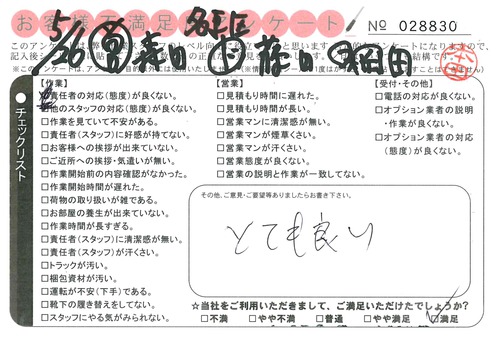 お客様不満足度アンケート
№ 028830
5/26
森田
チェックリスト
【作業】
責任者の対応(態度)が良くない。
□他のスタッフの対応(態度)が良くない。
□作業を見ていて不安がある。
□責任者(スタッフ)に好感が持てない。
□お客様への挨拶が出来ていない。
□ご近所への挨拶・気遣いが無い。
□作業開始前の内容確認がなかった。
□作業開始時間が遅れた。
□荷物の取り扱いが雑である。
□お部屋の養生が出来ていない。
□作業時間が長すぎる。
□責任者(スタッフ)に清潔感が無い。
□責任者(スタッフ)が汗くさい。
□トラックが汚い。
□梱包資材が汚い。
□運転が不安(下手)である。
□靴下の履き替えをしてない。
□スタッフにやる気がみられない。
【営業】
□見積もり時間に遅れた。
□見積もり時間が長い。
□営業マンに清潔感が無い。
□営業マンが煙草くさい。
□営業マンが汗くさい。
□営業態度が良くない。
□営業の説明と作業が一致してない。
【受付・その他】
□電話の対応が良くない。
□オプション業者の説明
・作業が良くない。
□オプション業者の対応
(態度)が良くない。
その他、ご意見・ご要望等ありましたらお書き下さい。
とても良い
☆当社をご利用いただきまして、ご満足いただけたでしょうか?
□不満 □やや不満 □普通 □やや満足 □満足